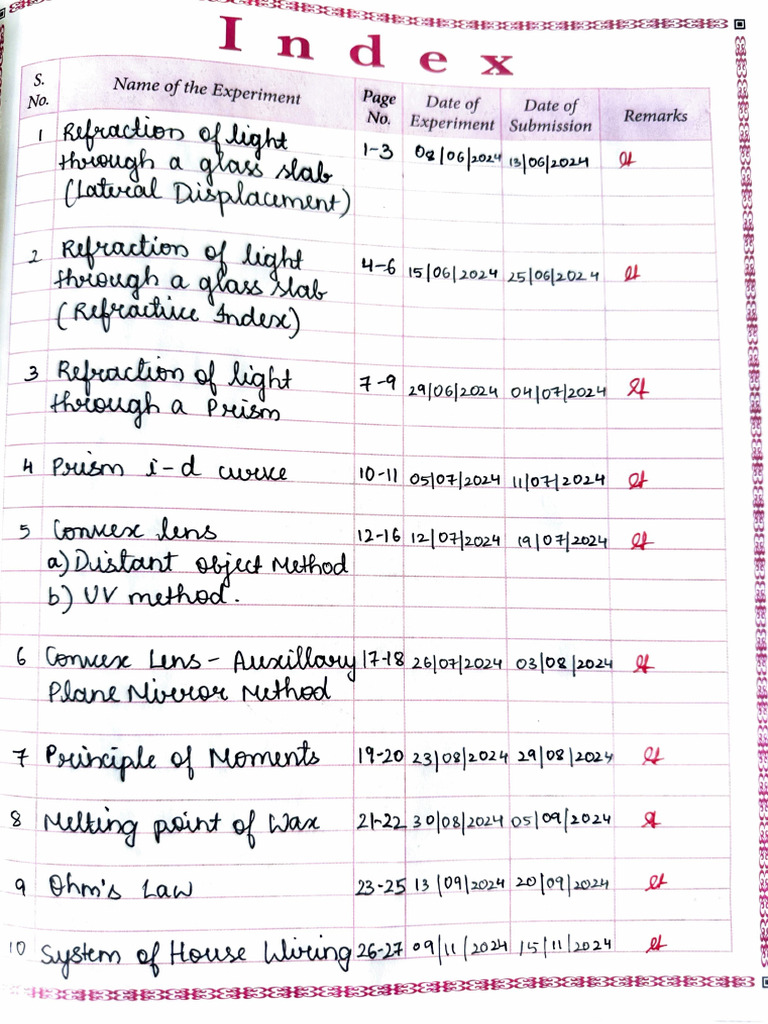 Index
S. No. Name of the Experiment Page No. Date of Experiment Date of Submission Remarks
1 Refraction of light 1-3 08/06/2024 13/06/2024
through a glass slab
(Lateral Displacement)
2 Refraction of light 4-6 15/06/2024 25/06/2024
through a glass slab
(Refractive Index)
3 Refraction of light 7-9 29/06/2024 04/07/2024
through a Prism
4 Prism i-d curve 10-11 05/07/2024 11/07/2024
5 Convex lens 12-16 12/07/2024 19/07/2024
a) Distant object Method
b) UV method.
6 Convex Lens - Auxillary 17-18 26/07/2024 03/08/2024
Plane Mirror Method
7 Principle of Moments 19-20 23/08/2024 29/08/2024
8 Melting point of Wax 21-22 30/08/2024 05/09/2024
9 Ohm's Law 23-25 13/09/2024 20/09/2024
10 System of House Wiring 26-27 09/11/2024 15/11/2024